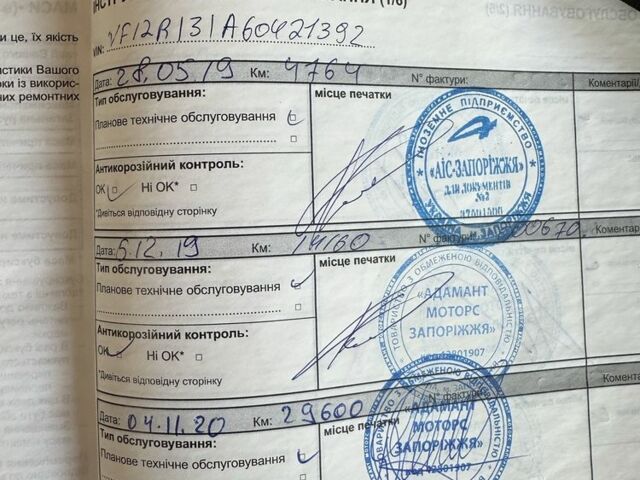 ОБСЛУГОВУВАННЯ (2/6)
и це, їх якість
VIN: VF12R131A60421392
истики Вашого
оки із викорис-
них ремонтних
Дата: 28.05.19 Км: 4764 N° фактури: Коментарії/
Тип обслуговування: місце печатки
Планове технічне обслуговування
Антикорозійний контроль:
OK Ні OK*
*Дивіться відповідну сторінку
ІНОЗЕМНЕ ПІДПРИЄМСТВО
«АІС-ЗАПОРІЖЖЯ»
ДЛЯ ДОКУМЕНТІВ
№2
Дата: 5.12.19 Км: 14160 N° фактури: 00670 Коментар
Тип обслуговування: місце печатки
Планове технічне обслуговування
Антикорозійний контроль:
OK Ні OK*
*Дивіться відповідну сторінку
ТОВАРИСТВО З ОБМЕЖЕНОЮ ВІДПОВІДАЛЬНІСТЮ
«АДАМАНТ
МОТОРС
ЗАПОРІЖЖЯ»
Дата: 04.11.20 Км: 29600 N° фактури: Комента
Тип обслуговування: місце печатки
Планове технічне обслуговування
«АДАМАНТ
МОТОРС
ЗАПОРІЖЖЯ»